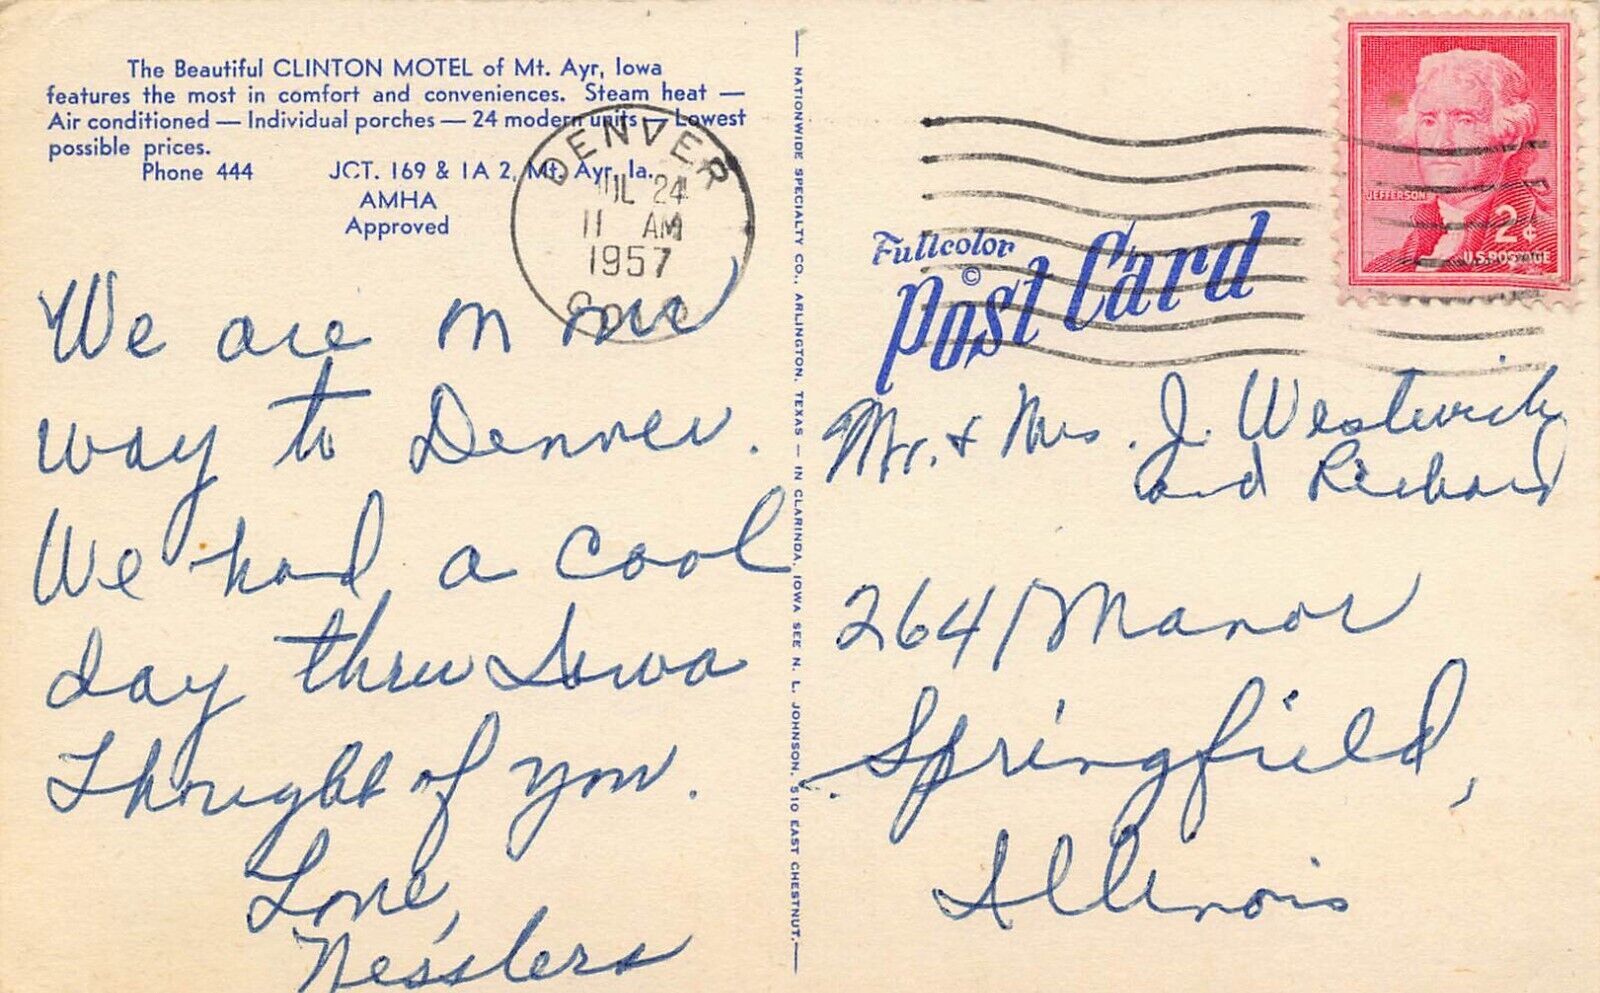 The Beautiful CLINTON MOTEL of Mt. Ayr, Iowa
features the most in comfort and conveniences. Steam heat —
Air conditioned — Individual porches — 24 modern units — Lowest
possible prices.
Phone 444 JCT. 169 & IA 2, Mt. Ayr, Ia.
AMHA
Approved
DENVER
JUL 24
11 AM
1957
COLO
We are on our
way to Denver.
We had a cool
day thru Iowa
Thought of you.
Love,
Nesslers
NATIONWIDE SPECIALTY CO., ARLINGTON, TEXAS — IN CLARINDA, IOWA SEE N. L. JOHNSON, 510 EAST CHESTNUT.
JEFFERSON
2¢
U.S. POSTAGE
Fullcolor
©
Post Card
Mr. & Mrs. J.
and Richard
2641 Manor
Springfield,
Illinois